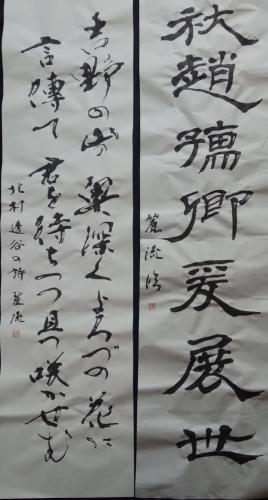 趙孺卿爰展世
吉野の山の奥深くよろづの花に
言傳て君を待ちつつ且つ咲かせむ
北村透谷の詩